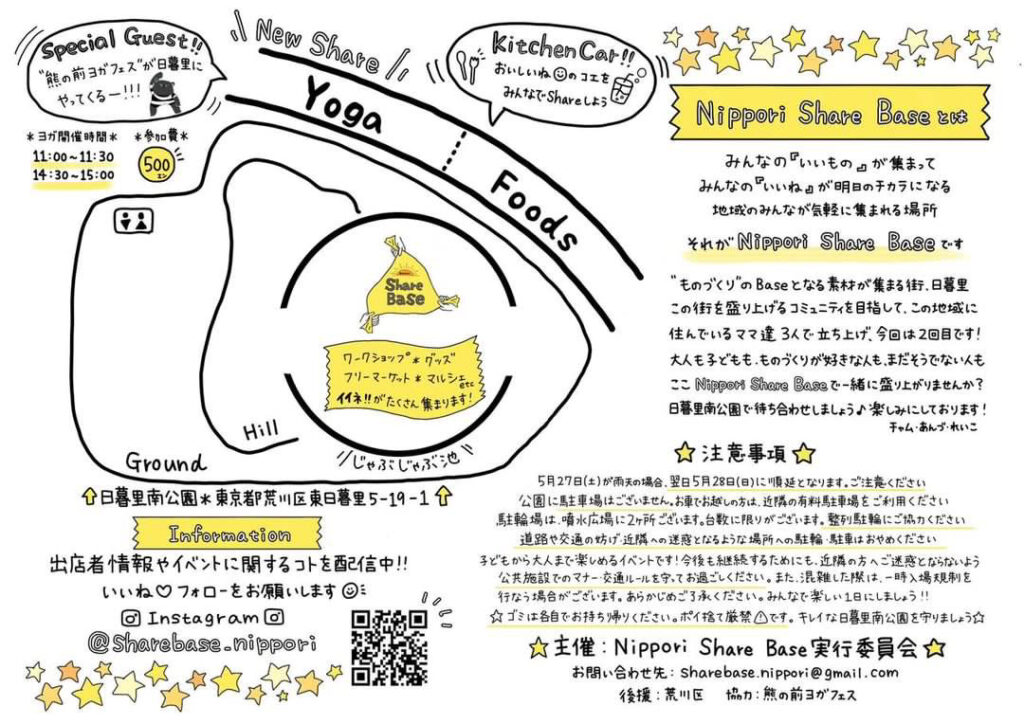 Special Guest!!
"熊の前ヨガフェス"が日暮里に
やってくるー!!!
＊ヨガ開催時間＊
11:00～11:30
14:30～15:00
＊参加費＊
500エン
New Share
Yoga
Foods
KitchenCar!!
おいしいね☺のコエを
みんなでShareしよう
Share
Base
ワークショップ＊グッズ
フリーマーケット＊マルシェ
etc
イイネ!!がたくさん集まります!
Hill
Ground
じゃぶじゃぶ池
⇧日暮里南公園＊東京都荒川区東日暮里5-19-1⇧
Information
出店者情報やイベントに関するコトを配信中!!
いいね♡フォローをお願いします☺
Instagram
@Sharebase.nippori
Nippori Share Baseとは
みんなの『いいもの』が集まって
みんなの『いいね』が明日のチカラになる
地域のみんなが気軽に集まれる場所
それがNippori Share Baseです
"ものづくり"のBaseとなる素材が集まる街、日暮里
この街を盛り上げるコミュニティを目指して、この地域に
住んでいるママ達3人で立ち上げ、今回は2回目です!
大人も子どもも、ものづくりが好きな人も、まだそうでない人も
ここNippori Share Baseで一緒に盛り上がりませんか?
日暮里南公園で待ち合わせしましょう♪楽しみにしております!
チャム・あんづ・れいこ
☆注意事項☆
5月27日(土)が雨天の場合、翌日5月28日(日)に順延となります。ご注意ください
公園に駐車場はございません。お車でお越しの方は、近隣の有料駐車場をご利用ください
駐輪場は、噴水広場に2ヶ所ございます。台数に限りがございます。整列駐輪にご協力ください
道路や交通の妨げ、近隣への迷惑となるような場所への駐輪・駐車はおやめください
子どもから大人まで楽しめるイベントです!今後も継続するためにも、近隣の方へご迷惑とならないよう
公共施設でのマナー・交通ルールを守ってお過ごしください。また、混雑した際は、一時入場規制を
行なう場合がございます。あらかじめご了承ください。みんなで楽しい1日にしましょう!!
☆ゴミは各自でお持ち帰りください。ポイ捨て厳禁⚠です。キレイな日暮里南公園を守りましょう☆
☆主催：Nippori Share Base実行委員会☆
お問い合わせ先：sharebase.nippori@gmail.com
後援：荒川区　協力：熊の前ヨガフェス